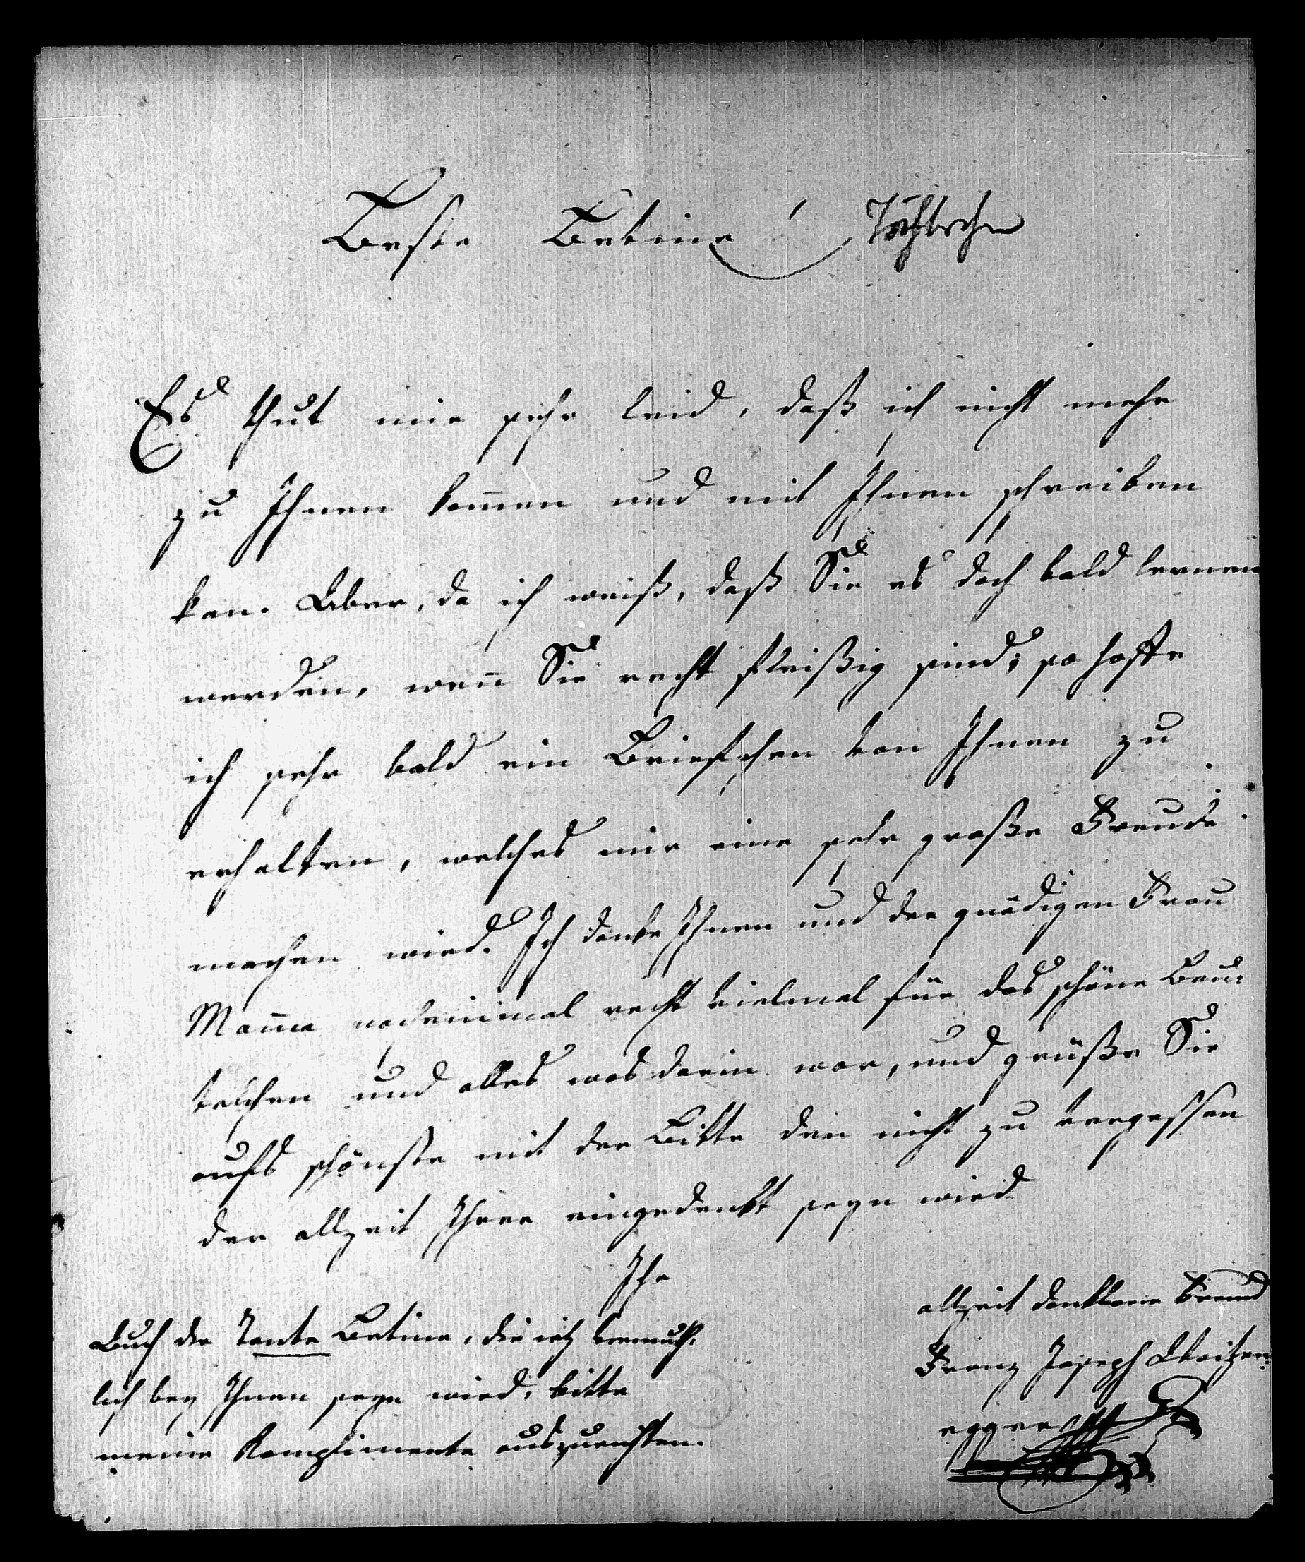 Beste Betine
Es thut mir sehr leid, daß ich nicht mehr
zu Ihnen kom̄en und mit Ihnen schreiben
kan. Aber, da ich weiß, daß Sie es doch bald lernen
werden, wen̄ Sie recht fleißig sind; so hoffe
ich sehr bald ein Briefchen von Ihnen zu
erhalten, welches mir eine sehr große Freude
machen wird. Ich danke Ihnen und der gnädigen Frau
Mam̄a nocheinmal recht vielmal für das schöne Beu:
telchen und alles was darin war, und grüße Sie
aufs schönste mit der Bitte den nicht zu vergessen
der allzeit Ihrer eingedenkt seyn wird
Ihr
allzeit dankbarer Freund
Franz Joseph
Auch der Tante Betine, die itz vermuth:
lich bey Ihnen seyn wird, bitte
meine Komplimente auszurichten.